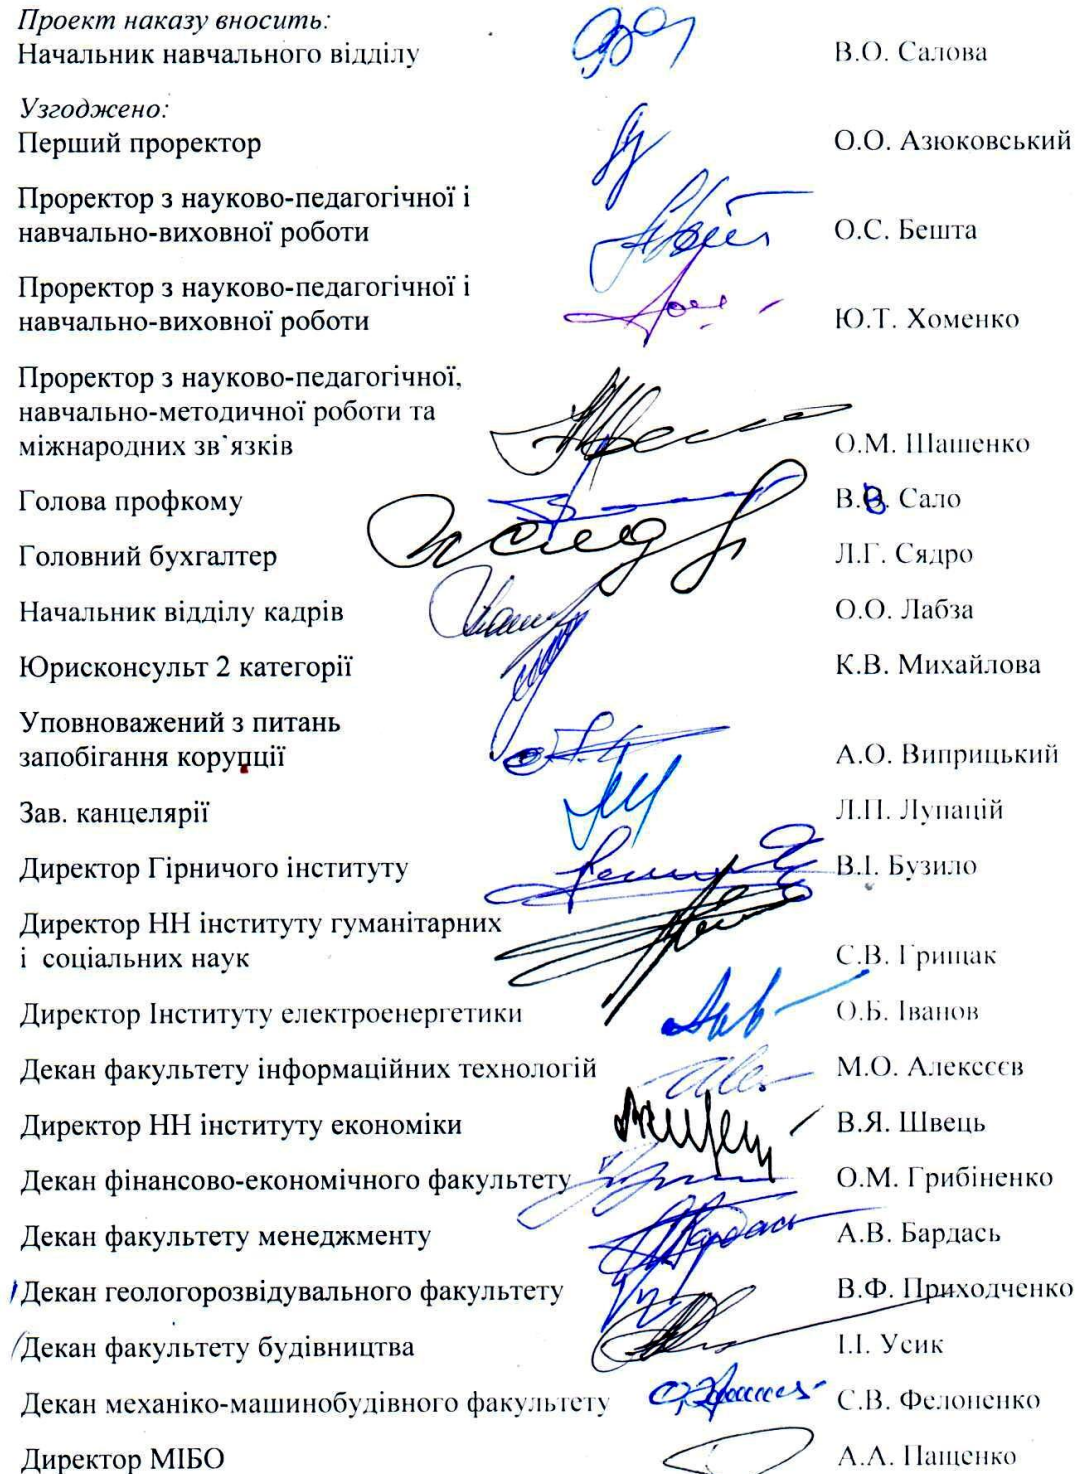 Проект наказу вносить:
Начальник навчального відділу В.О. Салова
Узгоджено:
Перший проректор О.О. Азюковський
Проректор з науково-педагогічної і
навчально-виховної роботи О.С. Бешта
Проректор з науково-педагогічної і
навчально-виховної роботи Ю.Т. Хоменко
Проректор з науково-педагогічної,
навчально-методичної роботи та
міжнародних зв`язків О.М. Шашенко
Голова профкому В.В. Сало
Головний бухгалтер Л.Г. Сядро
Начальник відділу кадрів О.О. Лабза
Юрисконсульт 2 категорії К.В. Михайлова
Уповноважений з питань
запобігання корупції А.О. Виприцький
Зав. канцелярії Л.П. Лупацій
Директор Гірничого інституту В.І. Бузило
Директор НН інституту гуманітарних
і соціальних наук С.В. Грищак
Директор Інституту електроенергетики О.Б. Іванов
Декан факультету інформаційних технологій М.О. Алексєєв
Директор НН інституту економіки В.Я. Швець
Декан фінансово-економічного факультету О.М. Грибіненко
Декан факультету менеджменту А.В. Бардась
Декан геологорозвідувального факультету В.Ф. Приходченко
Декан факультету будівництва І.І. Усик
Декан механіко-машинобудівного факультету С.В. Фелоненко
Директор МІБО А.А. Пащенко